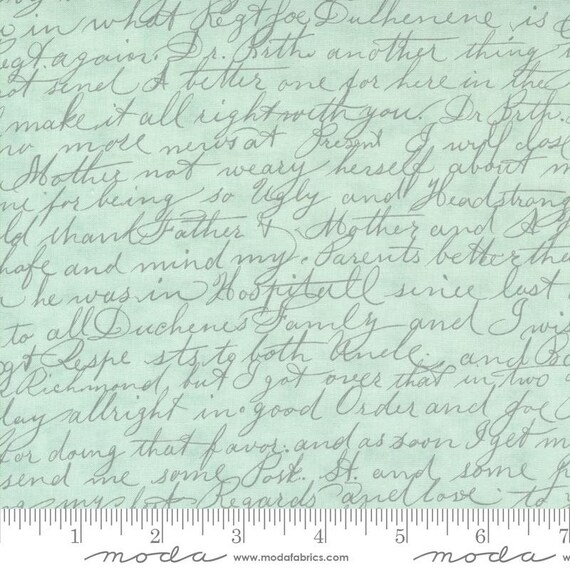 in what Regt Joe Duchenene is
Regt. again. Dr. Brth. another thing
not send A better one for here in the
make it all right with you. Dr Brth.
no more news at Present I will close
Mother not weary herself about
for being so Ugly and Headstrong
thank Father & Mother and A
and mind my Parents better
he was in Hospitall since last
to all Duchenes Family and I
Respe sts to both Uncle. and
Richmond, but I got over that in two
allright in good Order and Joe
for doing that favor. and as soon I get
send me some Post. St. and some
my Regards and love to
1 2 3 4 5 6 7
moda www.modafabrics.com moda www.modafabrics.com